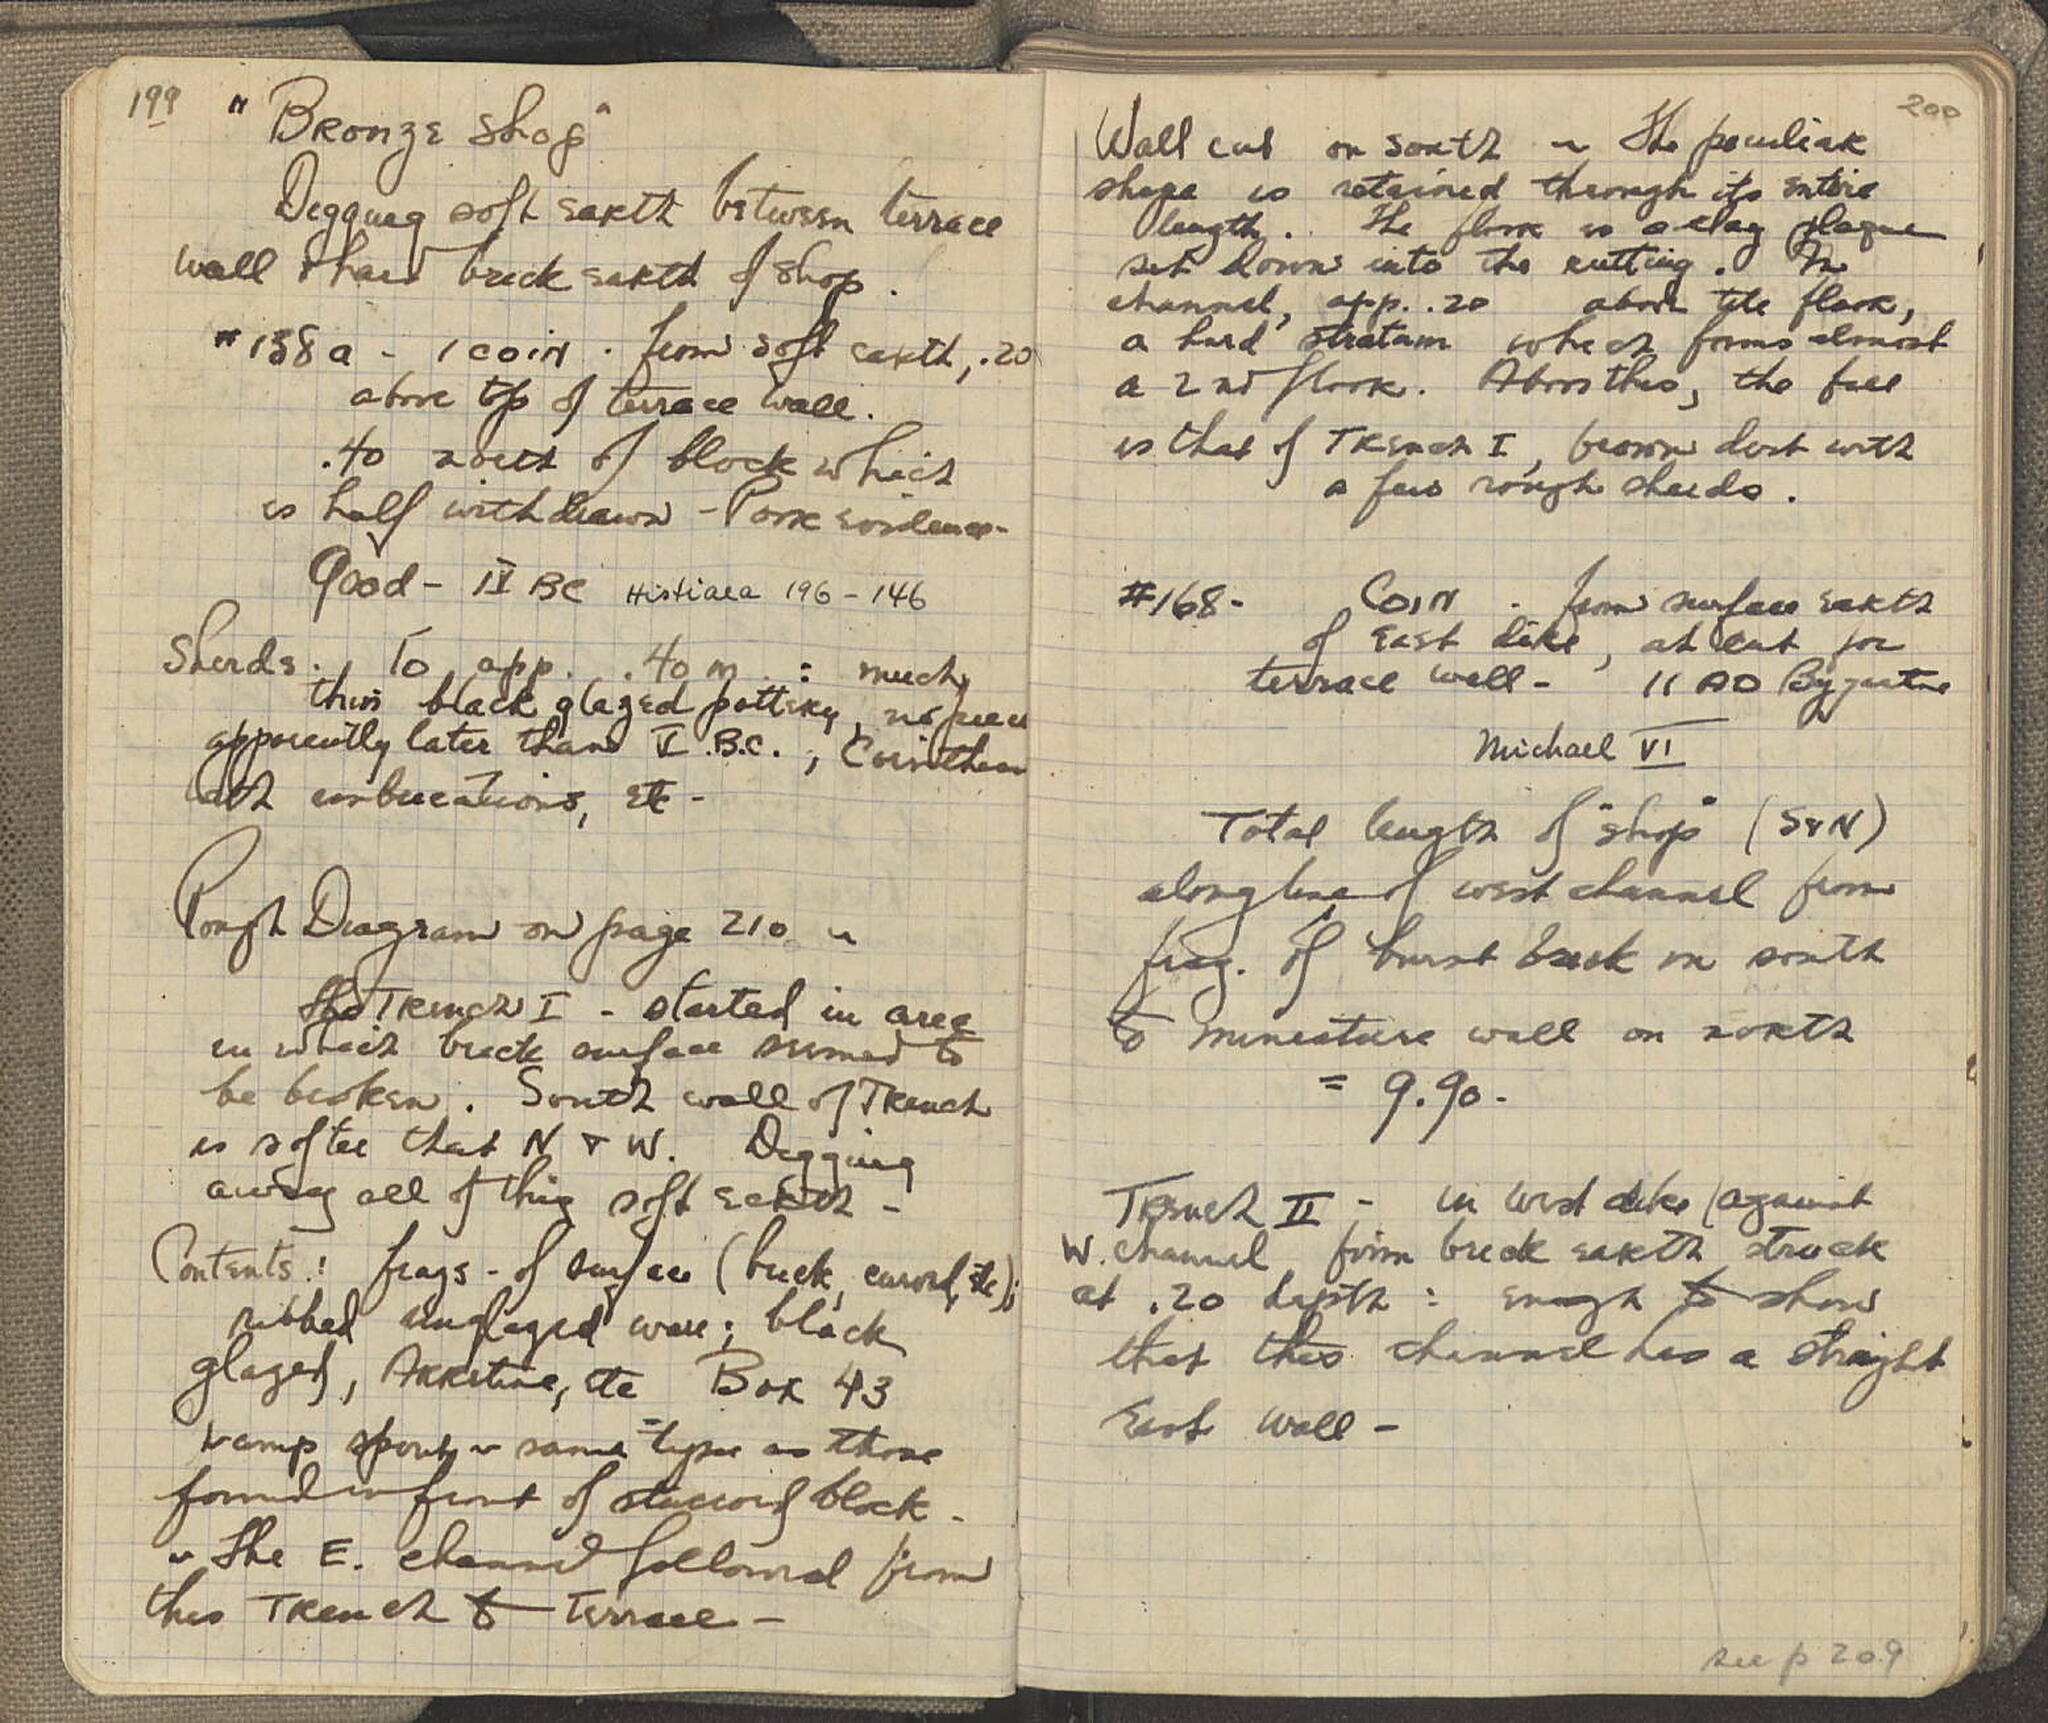 199
"Bronze Shop"
Digging soft earth between terrace
wall & hard brick earth of shop.
#138a - 1 coin . from soft earth, .20
above top of terrace wall.
.40 north of block which
is half withdrawn - Poor evidence -
Good - IV BC Histiaea 196 - 146
Sherds: To app. .40 m : much
thin black glazed pottery, no piece
apparently later than V B.C. ; Corinthian
with imbrications, etc -
Rough Diagram on page 210 ~
The Trench I - started in area
in which brick surface seemed to
be broken. South wall of Trench
is softer that N & W. Digging
away all of this soft earth -
Contents: frags - of surface (brick, curved, etc);
ribbed unglazed ware; black
glazed, Arretine, etc Box 43
spout ~ same type as those
found in front of stuccoed block -
~ The E. channel followed from
this Trench to Terrace -
200
Wall cut on south ~ The peculiar
shape is retained through its entire
length. The floor is a clay plaque
set down into the cutting. In
channel, app. .20 above the floor,
a hard stratum which forms almost
a 2nd floor. Above this, the fill
is that of Trench I, brown dirt with
a few rough sherds.
#168 - Coin - from surface earth
of East dike, at cut for
terrace wall - 11 AD Byzantine
Michael VI
Total length of "shop" (S & N)
along line of west channel from
frag. of burnt brick on south
to miniature wall on north
= 9.90 -
Trench II - in west dike (against
W. channel firm brick earth struck
at .20 depth : enough to show
that this channel has a straight
East wall -
see p 209